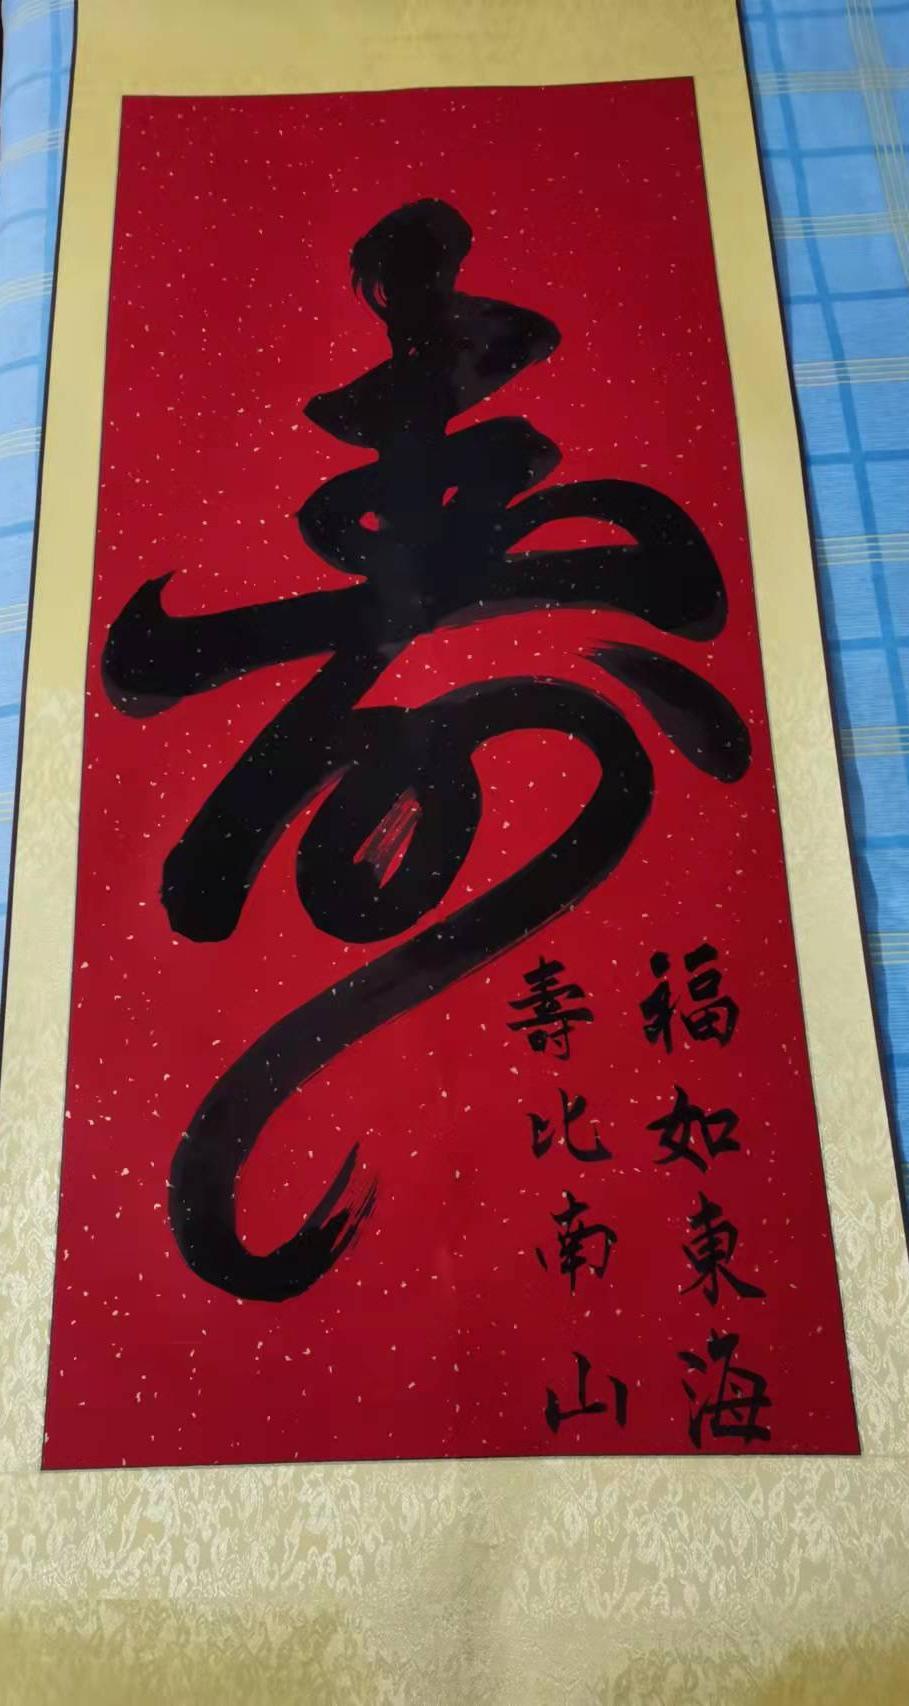 寿
福如東海
壽比南山